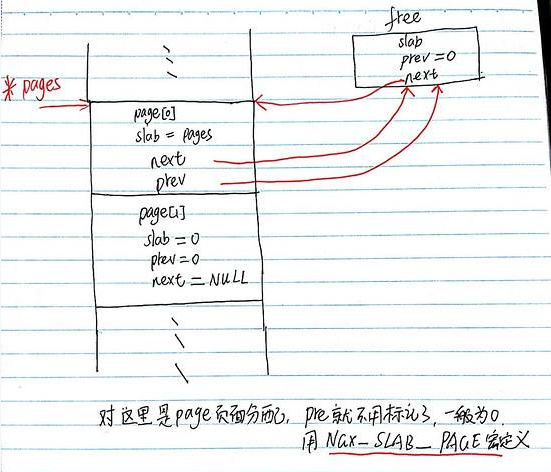 free
slab
prev = 0
next
* pages
page[0]
slab = pages
next
prev
page[1]
slab = 0
prev = 0
next = NULL
对这里是page页面分配, pre就不用标记了, 一般为0
用 NGX_SLAB_PAGE 宏定义